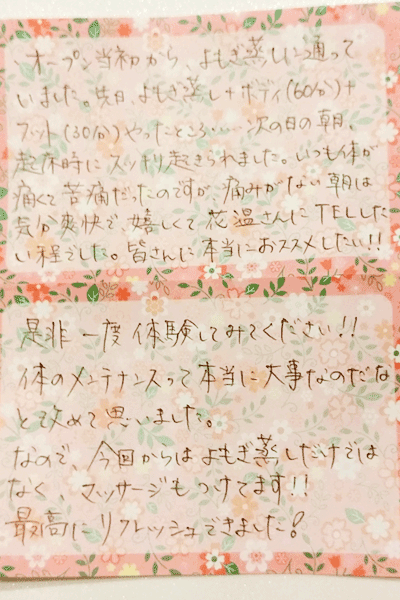 オープン当初から、よもぎ蒸しに通って
いました。先日、よもぎ蒸し+ボディ(60分)+
フット(30分)やったところ……次の日の朝、
起床時にスッキリ起きられました。いつも体が
痛くて苦痛だったのですが、痛みがない朝は
気分爽快で、嬉しくて花温さんにTELした
い程でした。皆さんに本当におススメしたい!!
是非一度体験してみてください!!
体のメンテナンスって本当に大事なのだな
と改めて思いました。
なので、今回からはよもぎ蒸しだけでは
なく、マッサージもつけてます!!
最高にリフレッシュできました!